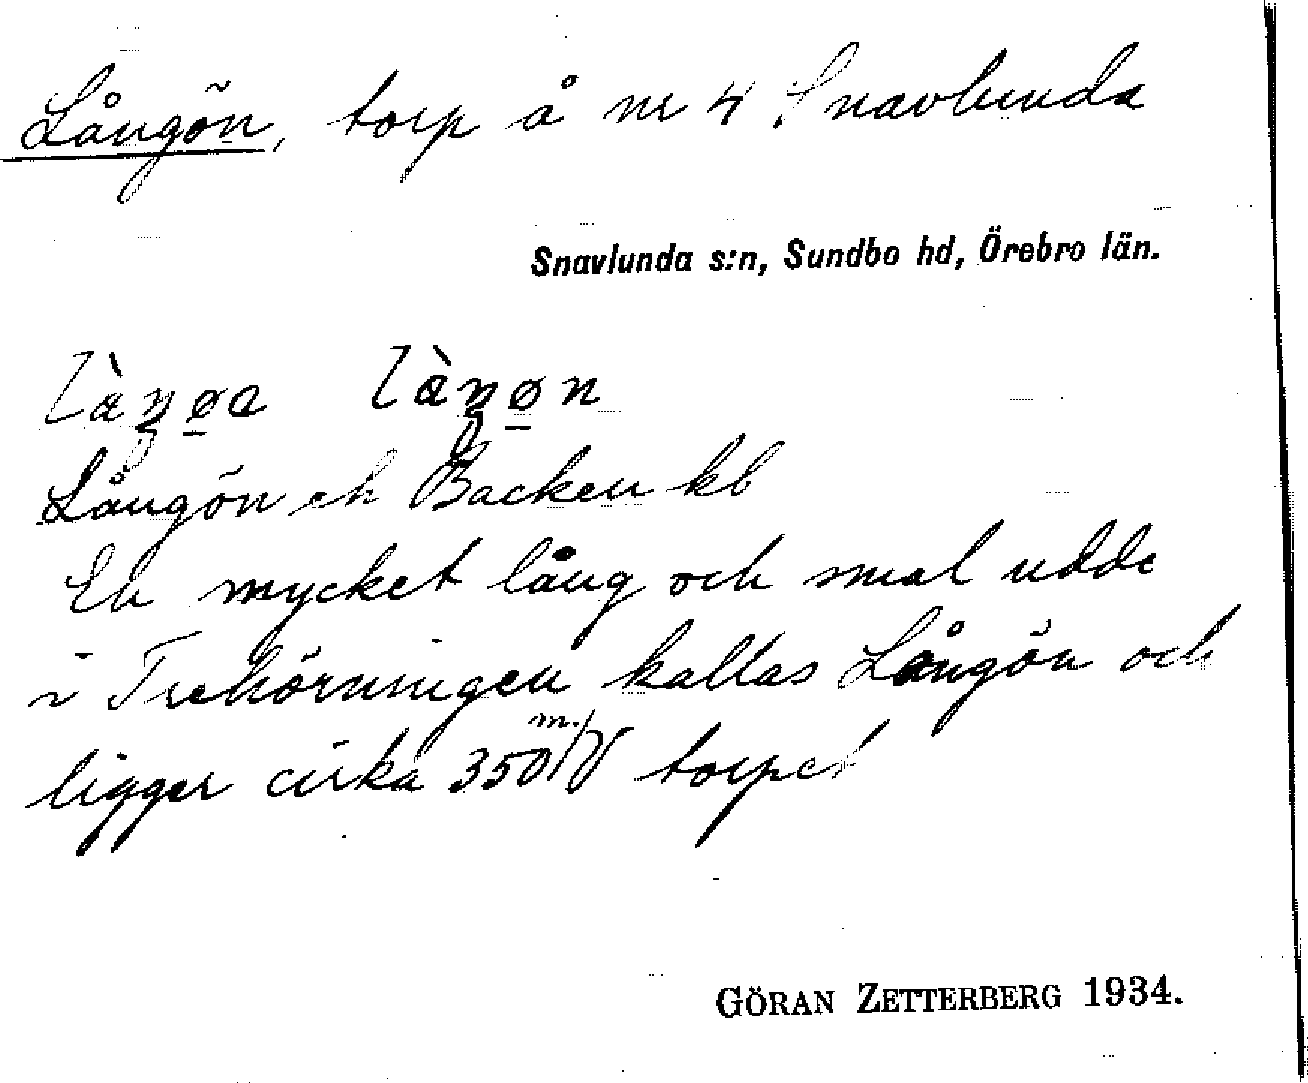 Långön, torp å nr 4 Snavlunda
Snavlunda s:n, Sundbo hd, Örebro län.
Långön ek Backen kb
En mycket lång och smal udde
i Trehörningen kallas Långön och
ligger cirka 350 m. V torpet
GÖRAN ZETTERBERG 1934.